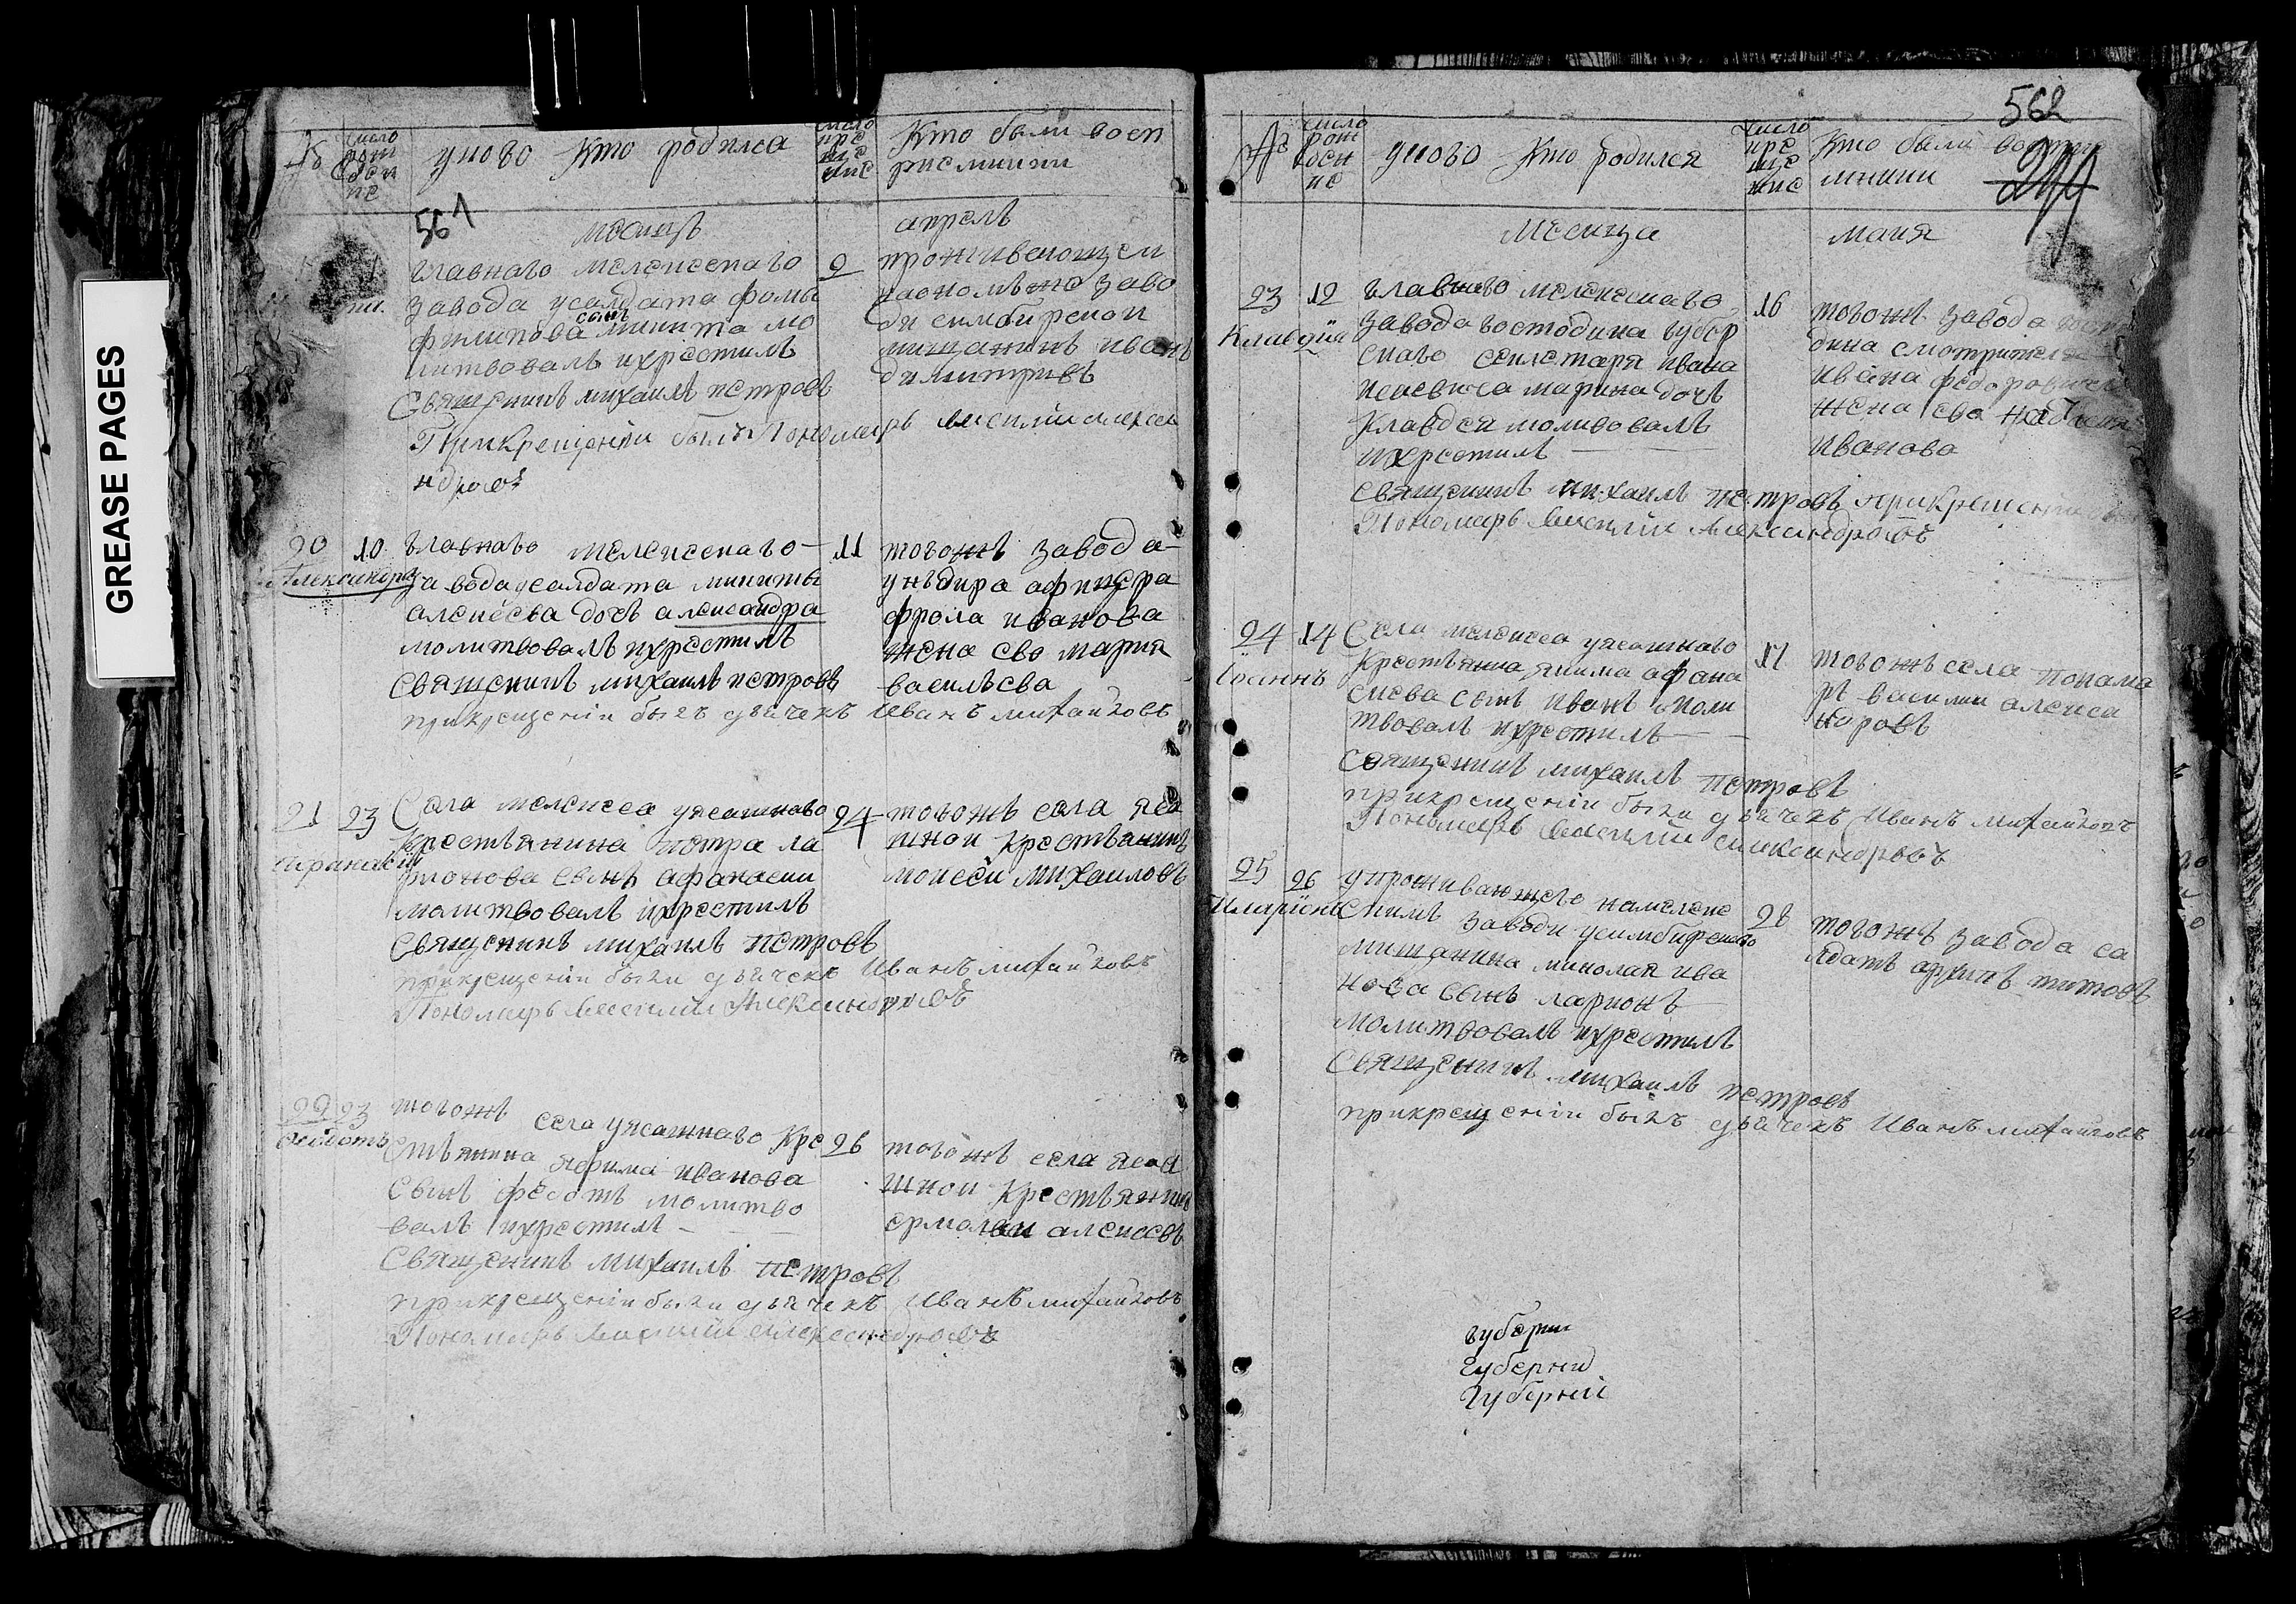 GREASE PAGES
№
число рож деn не
уково кто родился
число кре ще ние
Кто были восп
рисмники
561
месяцъ апрель
главнаго мелекескаго
завода усалдата фомы
филипова сынъ никита мо
литвовалъ икрестилъ
Священикъ михаилъ петровъ
При крещении былъ Пономарь василии алексан
ндровъ
9
проживающеи
заво
ди симбирскои
мищанинъ иванъ
димитривъ
20
Александра
10
главнаго мелекескаго
завода усалдата никиты
алексева дочь александра
молитвовалъ икрестилъ
Священикъ михаилъ петровъ
прикрещении былъ дьячекъ Иванъ михаиловъ
11
тогожъ завода
унъдира афицера
фрола иванова
жена ево мария
василъева
21
Афанасiй
23
Села мелекеса уясашнаво
крестьянина петра ла
рионова сынъ афанасии
молитвовалъ икрестилъ
Священикъ михаилъ петровъ
прикрещении были дьячекъ Иванъ михаиловъ
Пономарь василии Александровъ
24
тогожъ села яса
шнои крестъянинъ
моисеи михаиловъ
22
Федотъ
23
тогожъ села уясашнаво кре
стьянина ефима иванова
сынъ федотъ молитво
валъ икрестилъ
Священикъ михаилъ петровъ
прикрещении были дьячекъ Иванъ михаиловъ
Пономарь василии александровъ
26
тогожъ села яса
шнои крестьянинъ
ермолаи алексевъ
562
219
№
число рож ден ие
уково кто родился
число кре ще ние
Кто были восприе
мники
Месяца маия
23
Клавдия
12
главнаго мелекескаго
завода господина губер
скаго секлетаря ивана
дочь
клавдея моливовалъ
икрестилъ
Священикъ михаилъ петровъ прикрещении
Пономарь василии Александровъ
16
тогожъ завода госпо
дина смотрителя
ивана федоровича
жена ево
иванова
24
Iоаннъ
14
Села мелекеса уясашнаво
крестьянина якима афана
сиева сынъ иванъ моли
твовалъ икрестилъ
Священикъ михаилъ петровъ
прикрещении были дьячекъ Иванъ михаиловъ
Пономарь василии александровъ
17
тогожъ села понама
рь василии алекса
ндровъ
25
Иларiонъ
26
упроживающего намелеке
скимъ заводи усимбирскаго
мищанина николая ива
нова сынъ ларионъ
молитвовалъ икрестилъ
Священикъ михаилъ петровъ
прикрещении былъ дьячекъ Иванъ михаиловъ
28
тогожъ завода са
лдатъ архипъ титовъ
губерни
Губернии
Губернии